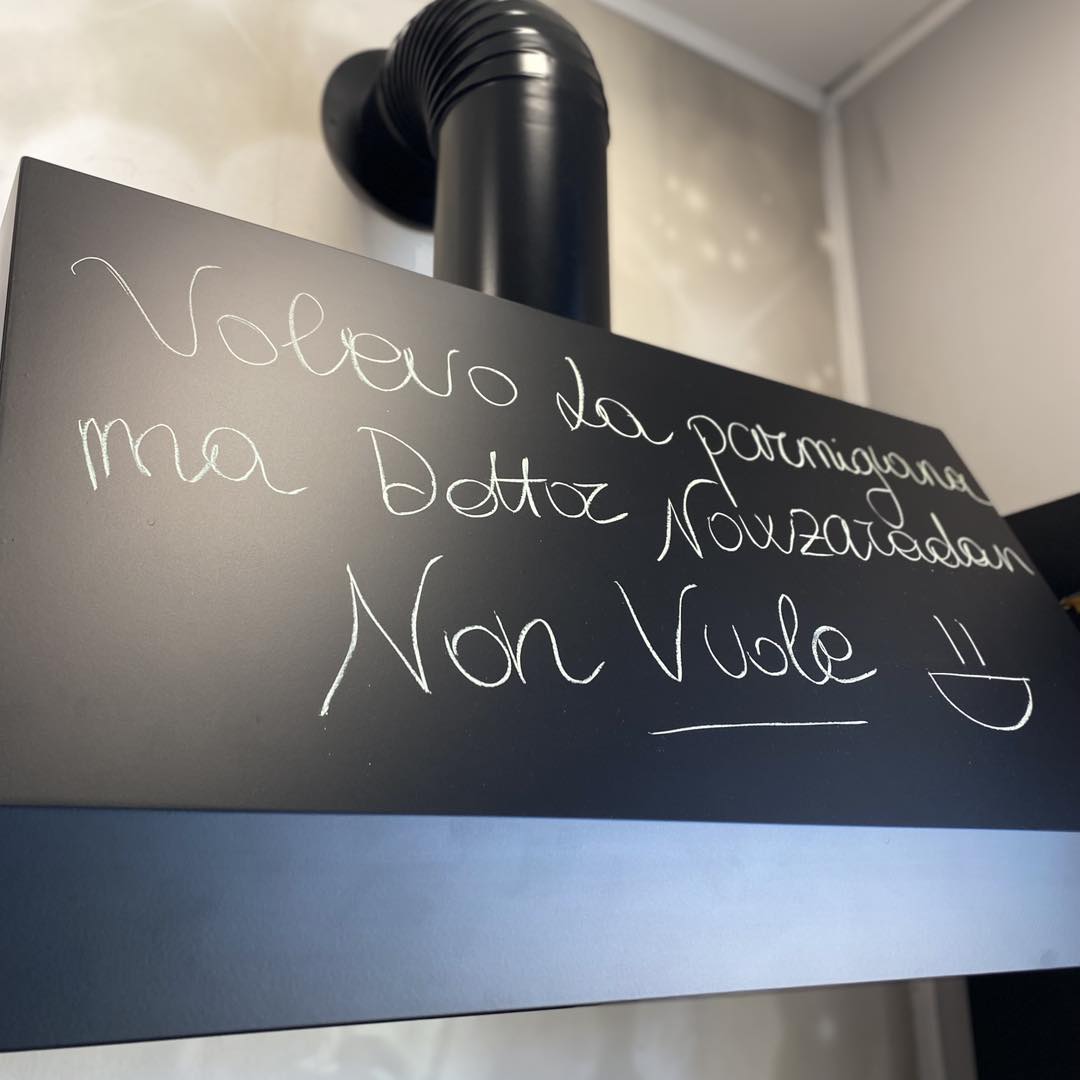 Volevo La parmigiana
ma Dottor Nowzaradan
Non Vuole =D